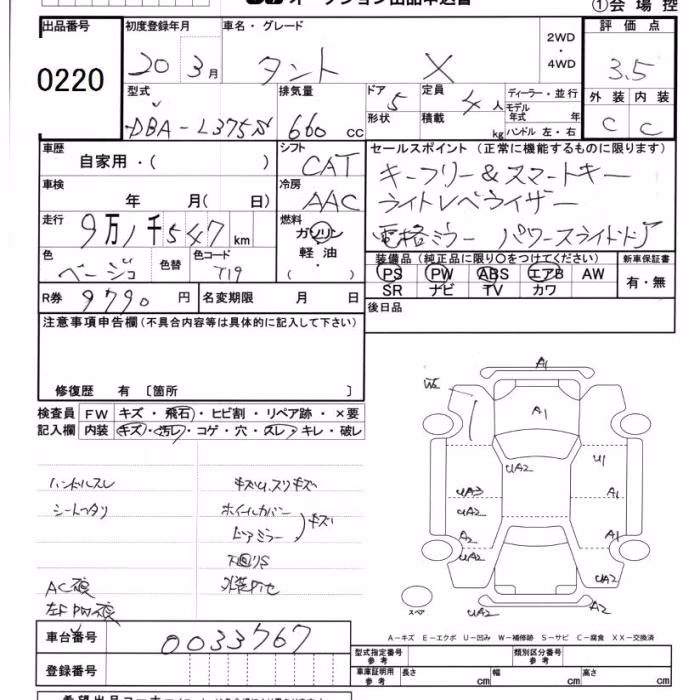 オークション出品申込書
①会場控
出品番号 初度登録年月 車名・グレード 2WD ・ 4WD 評価点
0220 20 3月 タント X 3.5
型式 排気量 ドア 5 定員 4人 ディーラー・並行 外装 内装
DBA-L375S 660 cc 形状 積載 kg モデル年式 年 C C
ハンドル 左・右
車歴 自家用・( ) シフト CAT セールスポイント (正常に機能するものに限ります)
キーフリー&スマートキー
車検 年 月( 日) 冷房 AAC ライトレベライザー
走行 9万1千547km 燃料 ガソリン 軽油 ・( ) 電格ミラー パワースライドドア
色 ベージュ 色替 色コード T19
装備品 (純正品に限り○をつけてください) 新車保証書
PS PW ABS エアB AW 有・無
SR ナビ TV カワ
R券 9790円 名変期限 月 日 後日品
注意事項申告欄(不具合内容等は具体的に記入して下さい)
修復歴 有 〔箇所 〕
検査員 FW キズ・飛石・ヒビ割・リペア跡・×要
記入欄 内装 キズ・汚レ・コゲ・穴・スレ・キレ・破レ
ハンドルスレ
シートヘタリ
ホイールカバー
ドアミラー キズ
下廻りS
車台番号 0033767
登録番号
A1
A1
UA2 U1
UA3 A1
UA2
A2 A1
UA2 UA2
スペア UA2 A2
A-キズ E-エクボ U-凹み W-補修跡 S-サビ C-腐食 XX-交換済
型式指定番号 参考 類別区分番号 参考
車庫証明用 参考 長さ cm 幅 cm 高さ cm